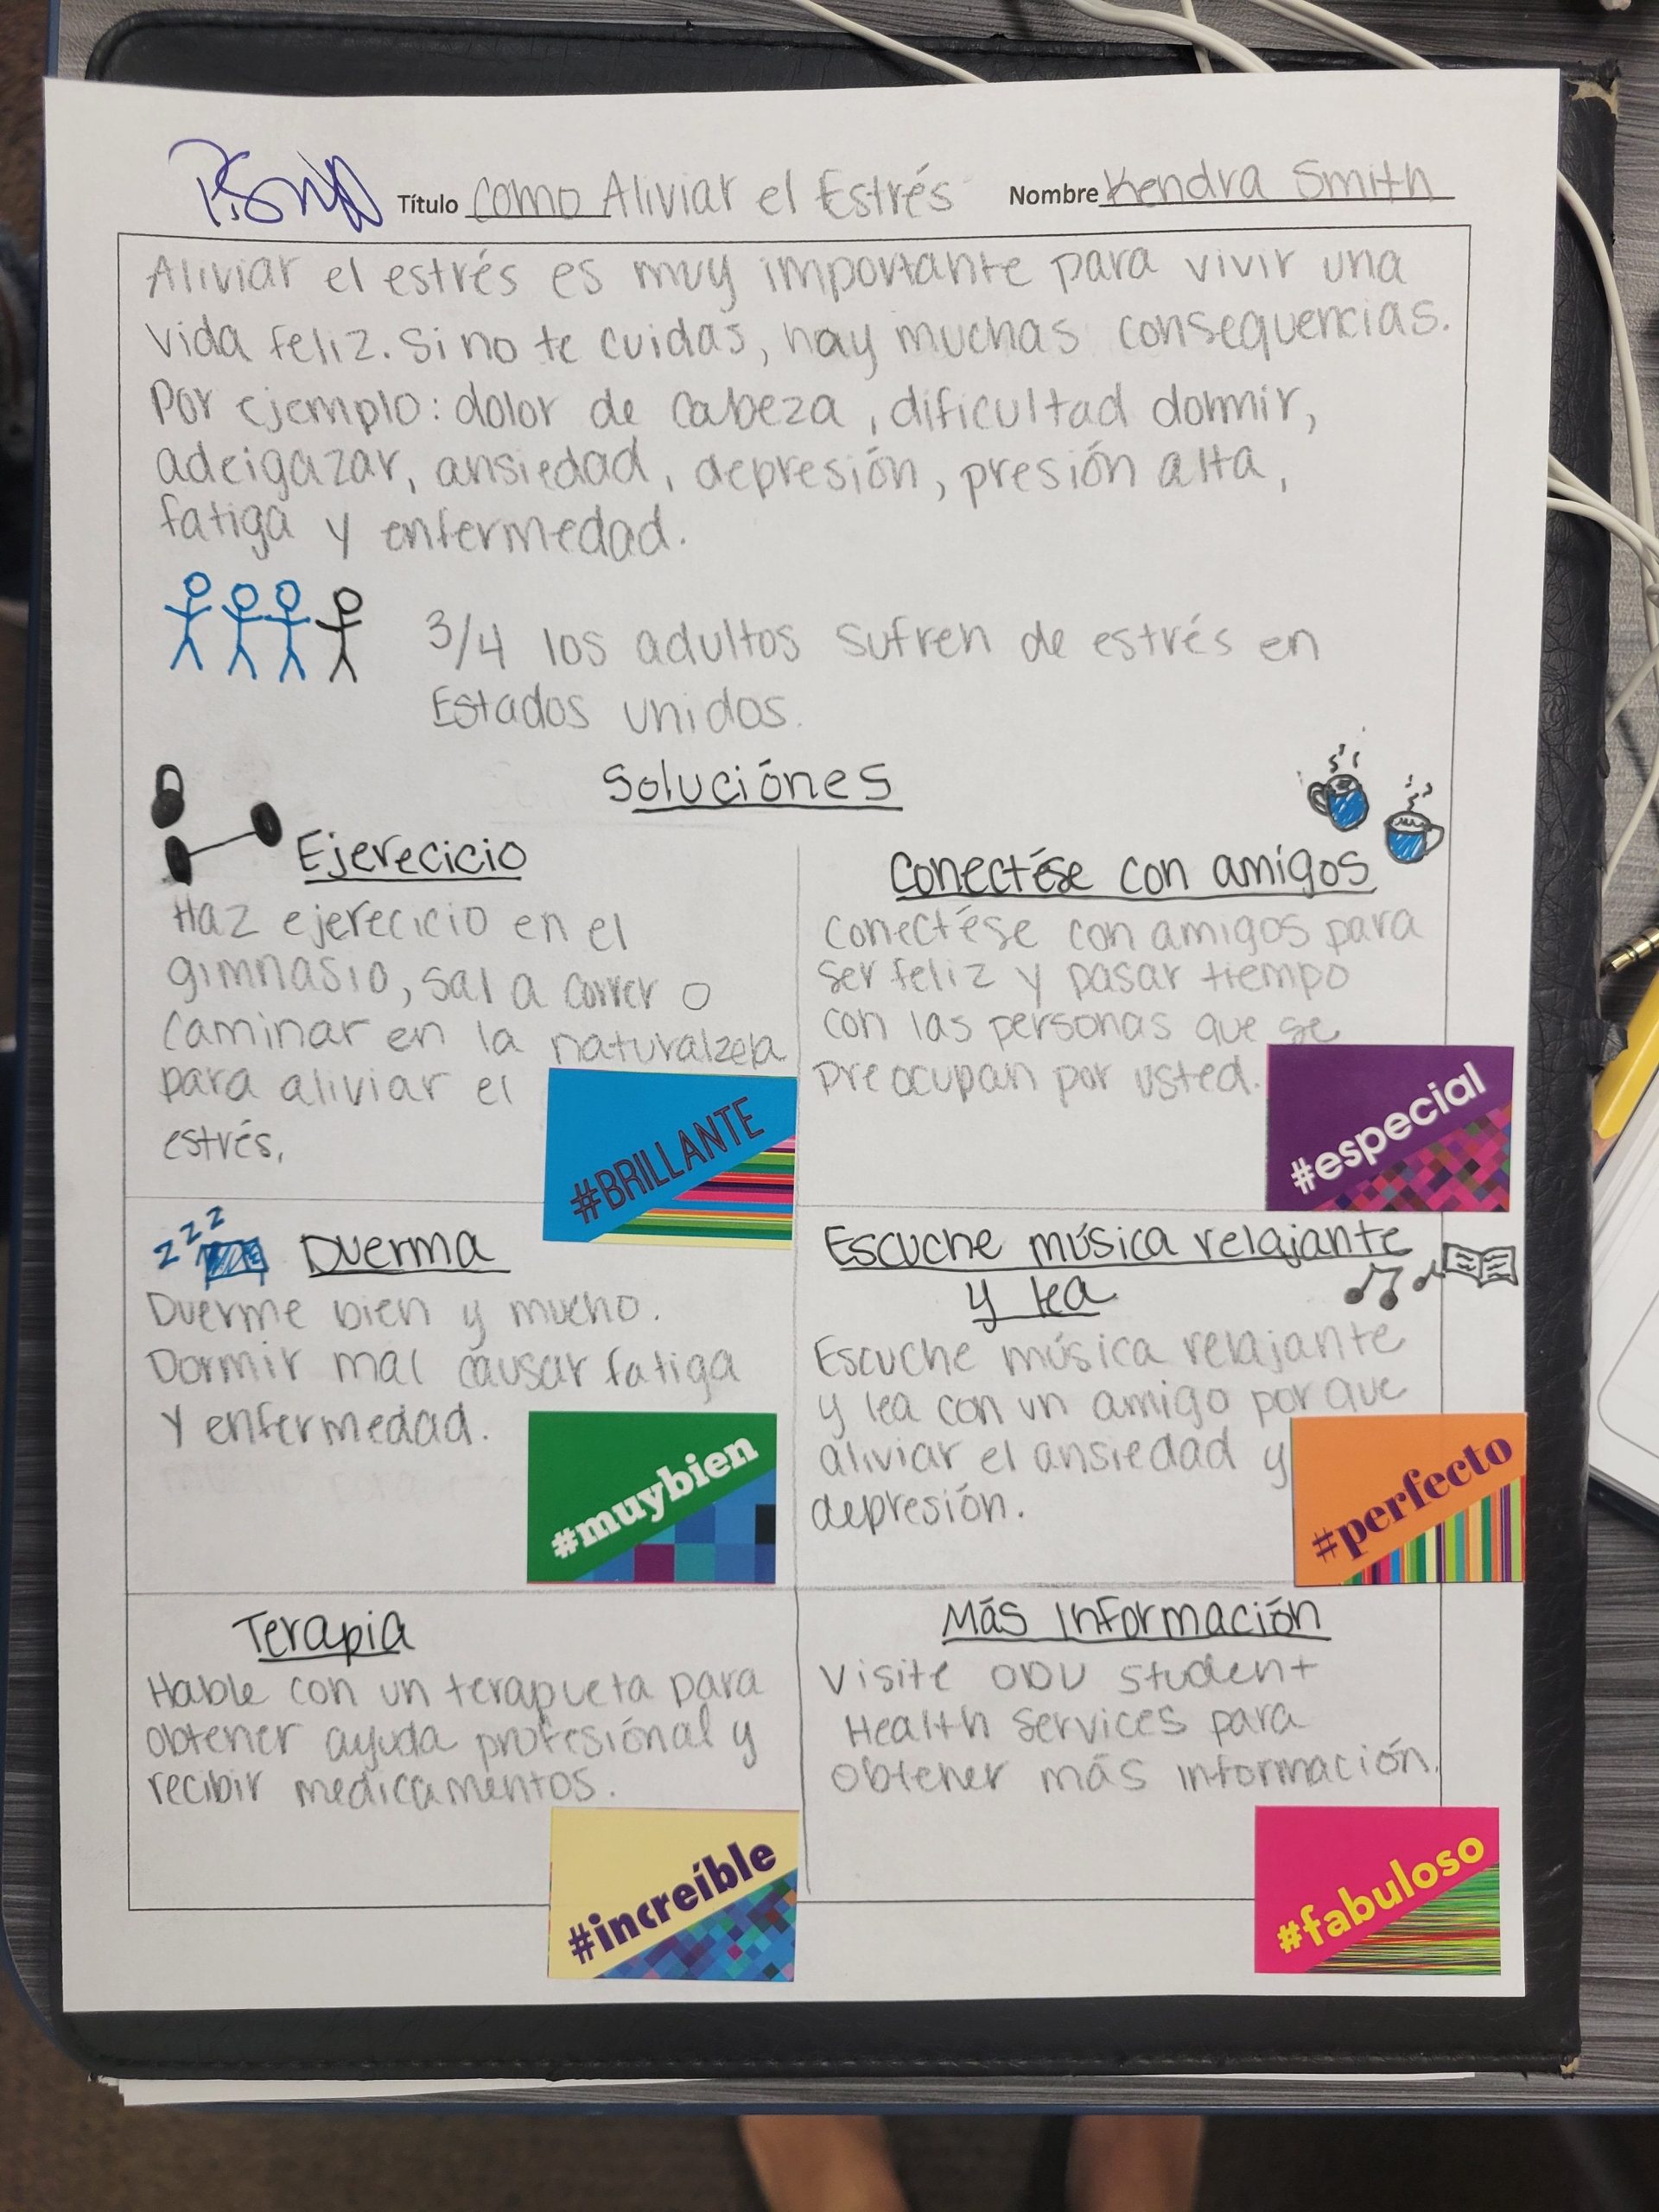 Título Como Aliviar el Estrés Nombre Kendra Smith
Aliviar el estrés es muy importante para vivir una
vida feliz. Si no te cuidas, hay muchas consequencias.
Por ejemplo: dolor de cabeza, dificultad dormir,
adeigazar, ansiedad, depresión, presión alta,
fatiga y enfermedad.
3/4 los adultos sufren de estrés en
Estados unidos.
Soluciónes
Ejerecicio
Haz ejerecicio en el
gimnasio, sal a correr o
caminar en la naturalzela
para aliviar el
estrés.
#BRILLANTE
Conectése con amigos
Conectése con amigos para
ser feliz y pasar tiempo
con las personas que se
preocupan por usted.
#especial
zzz Duerma
Duerme bien y mucho.
Dormir mal causar fatiga
y enfermedad.
#muybien
Escuche música relajante
y lea
Escuche música relajante
y lea con un amigo por que
aliviar el ansiedad y
depresión.
#perfecto
Terapia
Hable con un terapueta para
obtener ayuda profesiónal y
recibir medicamentos.
#increíble
Más Información
Visite ODU Student
Health Services para
obtener más información.
#fabuloso